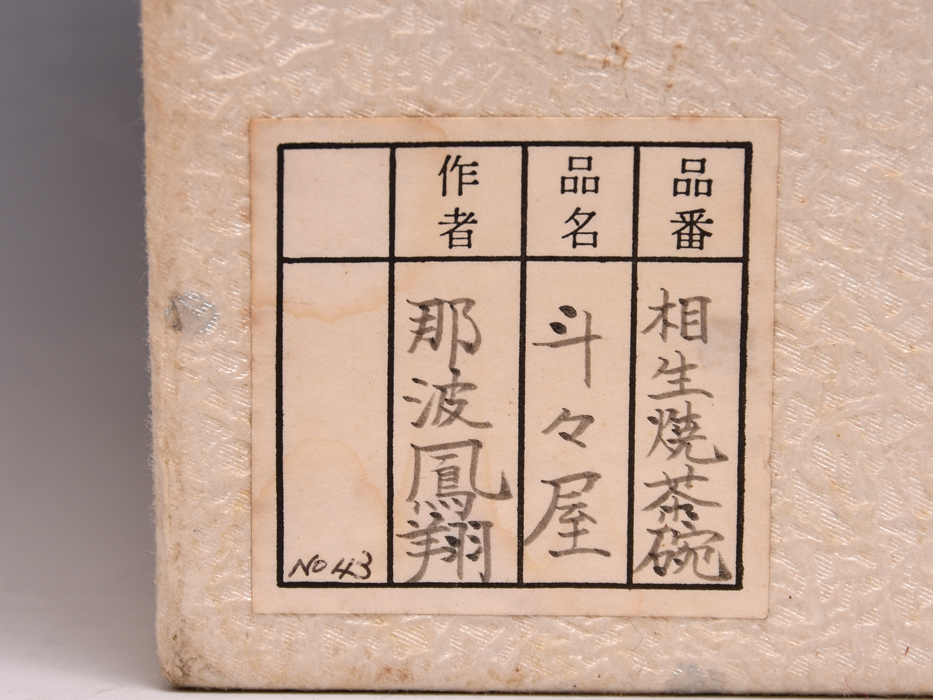 品番
相生燒茶碗
品名
斗々屋
作者
那波鳳翔
No 43